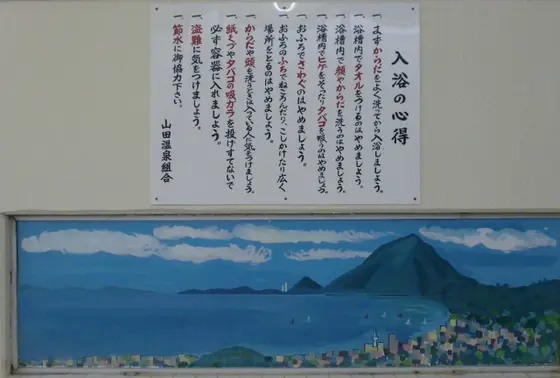 入浴の心得
一、まずからだをよく洗ってから入浴しましょう。
一、浴槽内でタオルをつけるのはやめましょう。
一、浴槽内で顔やからだを洗うのはやめましょう。
一、浴槽内でヒゲをそったりタバコを吸うのはやめましょう。
一、おふろでさわぐのはやめましょう。
一、おふろのふちでねころんだり、こしかけたり広く
場所をとるのはやめましょう。
一、からだや頭を洗うときは入っている人に気をつけましょう。
一、紙ミソやタバコの吸ガラを投げすてないで
必ず容器に入れましょう。
一、盗難に気をつけましょう。
一、節水に御協力下さい。
山田温泉組合